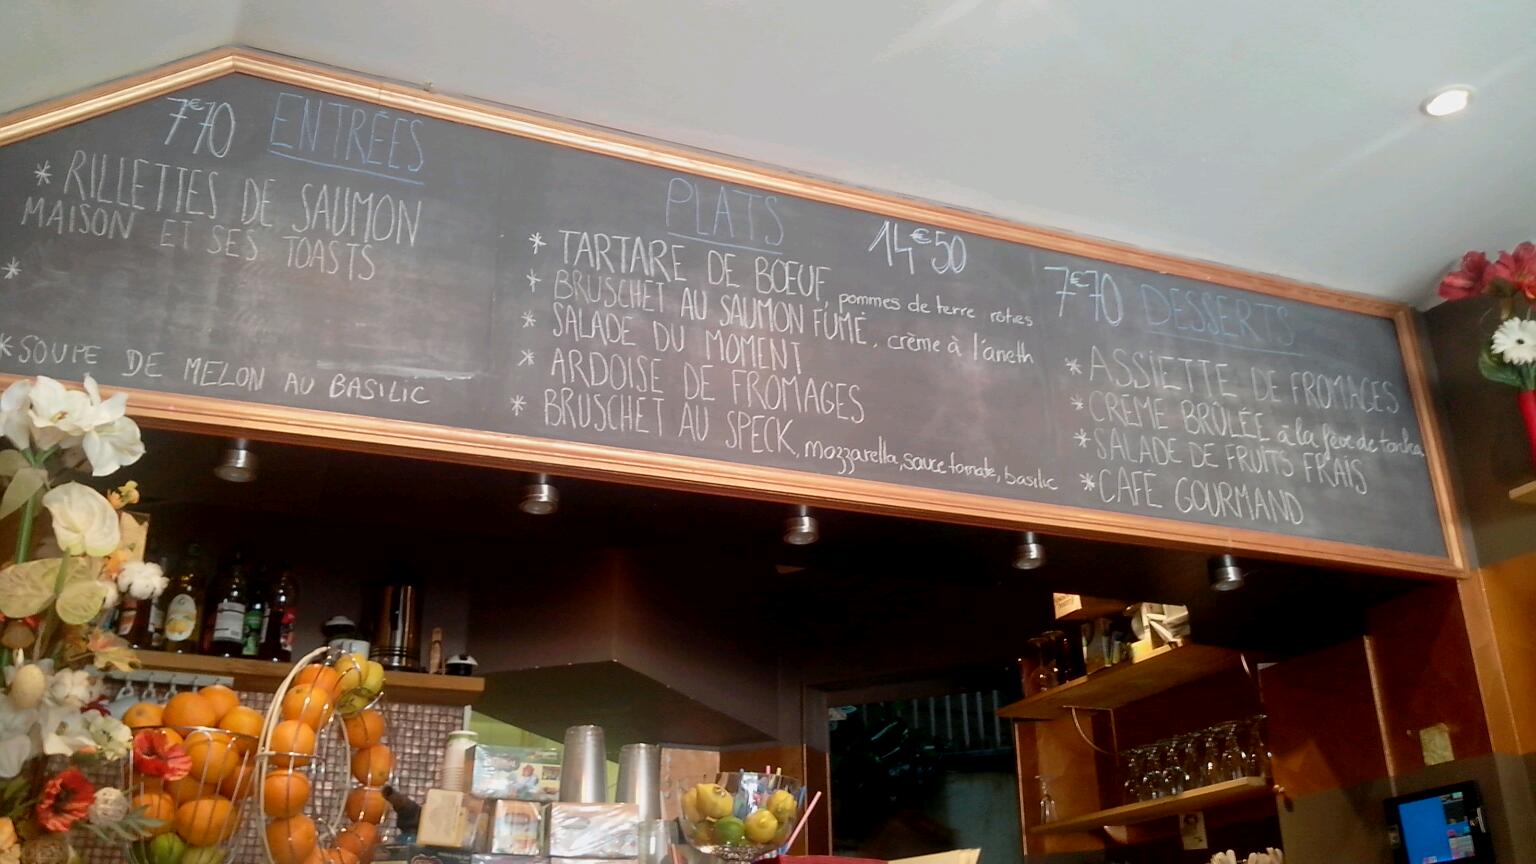 7€70 ENTRÉES
* RILLETTES DE SAUMON
MAISON ET SES TOASTS
*
*SOUPE DE MELON AU BASILIC
PLATS 14€50
* TARTARE DE BŒUF, pommes de terre roties
* BRUSCHET AU SAUMON FUMÉ, crème à l'aneth
* SALADE DU MOMENT
* ARDOISE DE FROMAGES
* BRUSCHET AU SPECK, mozzarella, sauce tomate, basilic
7€70 DESSERTS
* ASSIETTE DE FROMAGES
* CRÈME BRÛLÉE à la fève de tonka
* SALADE DE FRUITS FRAIS
* CAFÉ GOURMAND